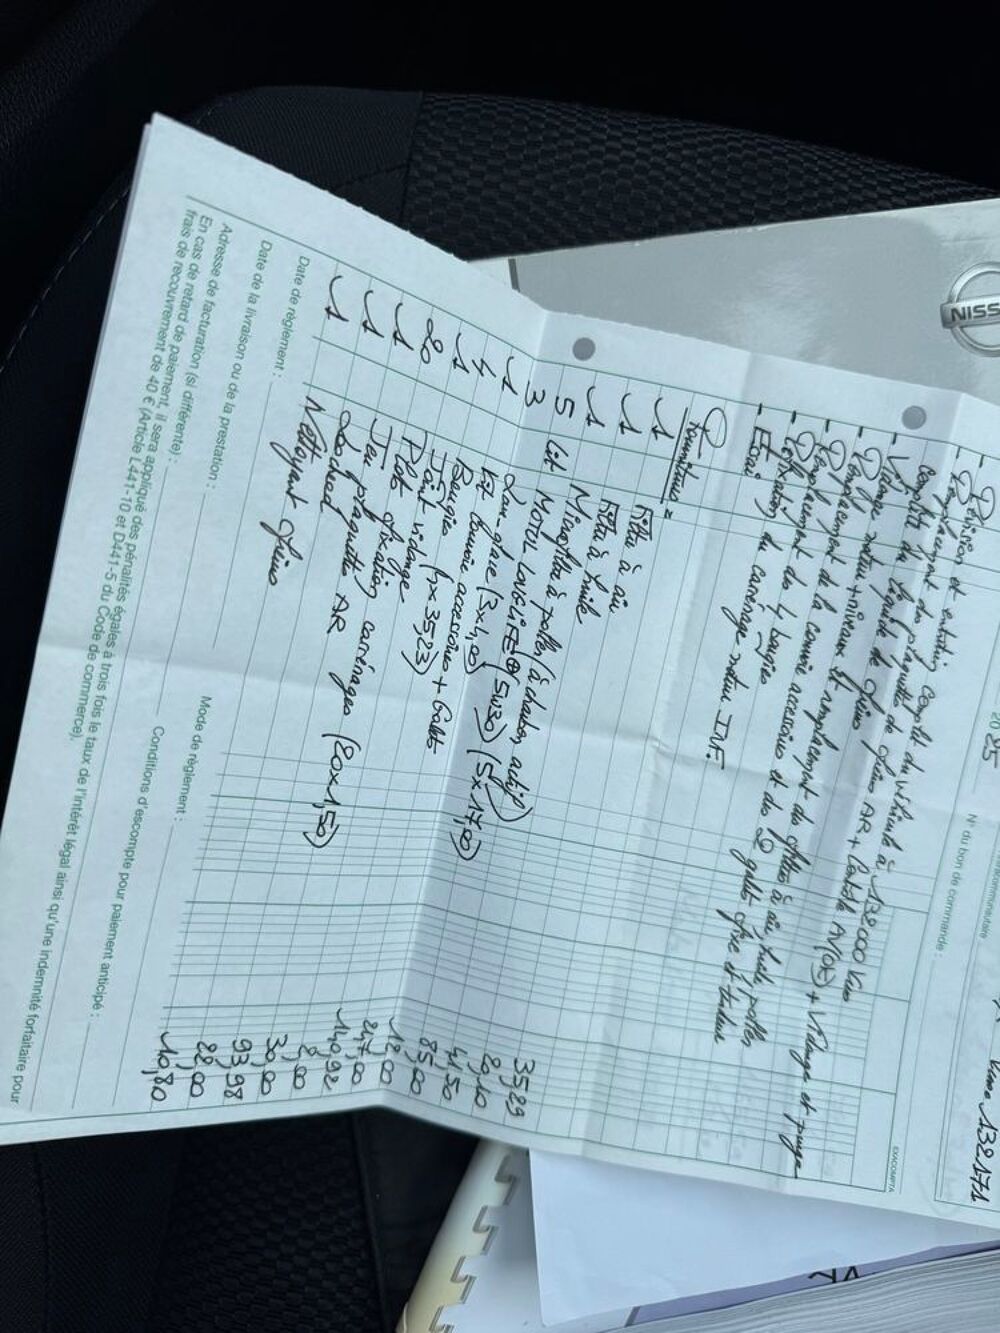 NISS
2025
N° du bon de commande :
Kms 132171
EXACOMPTA
- Révision et entretien complet du véhicule à 132000 Kms
- Remplacement des plaquettes de freins AR + contrôle AV (OK) + vidange et purge
complète du liquide de freins
- Vidange moteur + niveaux et remplacement des filtres à air, huile, pollen
- Remplacement de la courroie accessoires et des 2 galets fixe et tendeur
- Remplacement des 4 bougies
- Réfection du carénage moteur INF.
- Essai
Fournitures =
1 Filtre à air 35,29
1 Filtre à huile 20,10
1 Microfiltre à pollen (à charbon actif) 41,50
5 Lit MOTUL 5W30 (5x17,00) 85,00
3 Lave-glace (3x4,00) 12,00
1 Kit courroie accessoires + Galets 247,00
4 Bougies (4x35,23) 140,92
1 Joint vidange 2,00
20 Plot fixation carénages (20x1,50) 30,00
1 Jeu plaquettes AR 93,98
1 Lockheed 22,00
1 Nettoyant freins 10,80
Date de règlement :
Mode de règlement :
Date de la livraison ou de la prestation :
Conditions d'escompte pour paiement anticipé :
Adresse de facturation (si différente) :
En cas de retard de paiement, il sera appliqué des pénalités égales à trois fois le taux de l'intérêt légal ainsi qu'une indemnité forfaitaire pour
frais de recouvrement de 40 € (Article L441-10 et D441-5 du Code de commerce).